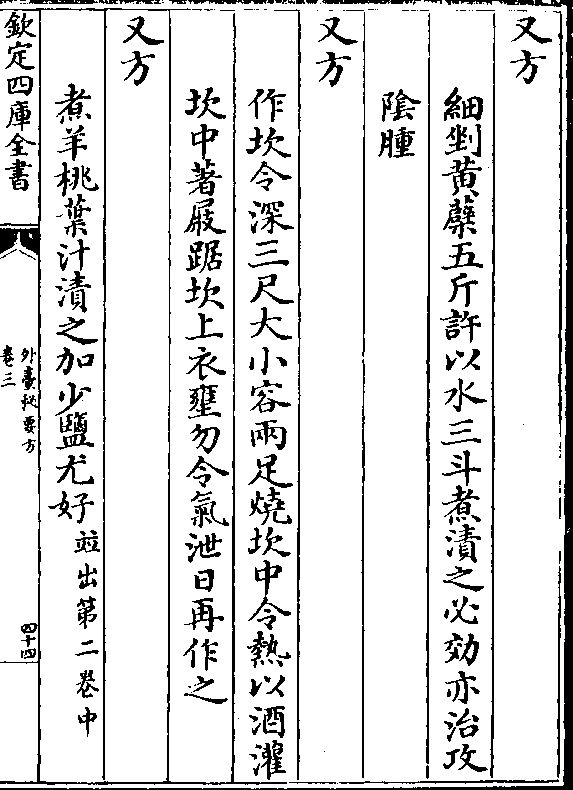 又方
細剉黄蘗五斤許以水三斗煮漬之必効亦治攻
陰腫
又方
作坎令深三尺大小容兩足燒坎中令熱以酒灌
坎中著屐踞坎上衣壅勿令氣泄日再作之
又方
煮羊桃葉汁漬之加少鹽尤好並出第二卷中
欽定四庫全書
外臺秘要方
卷三
四十四